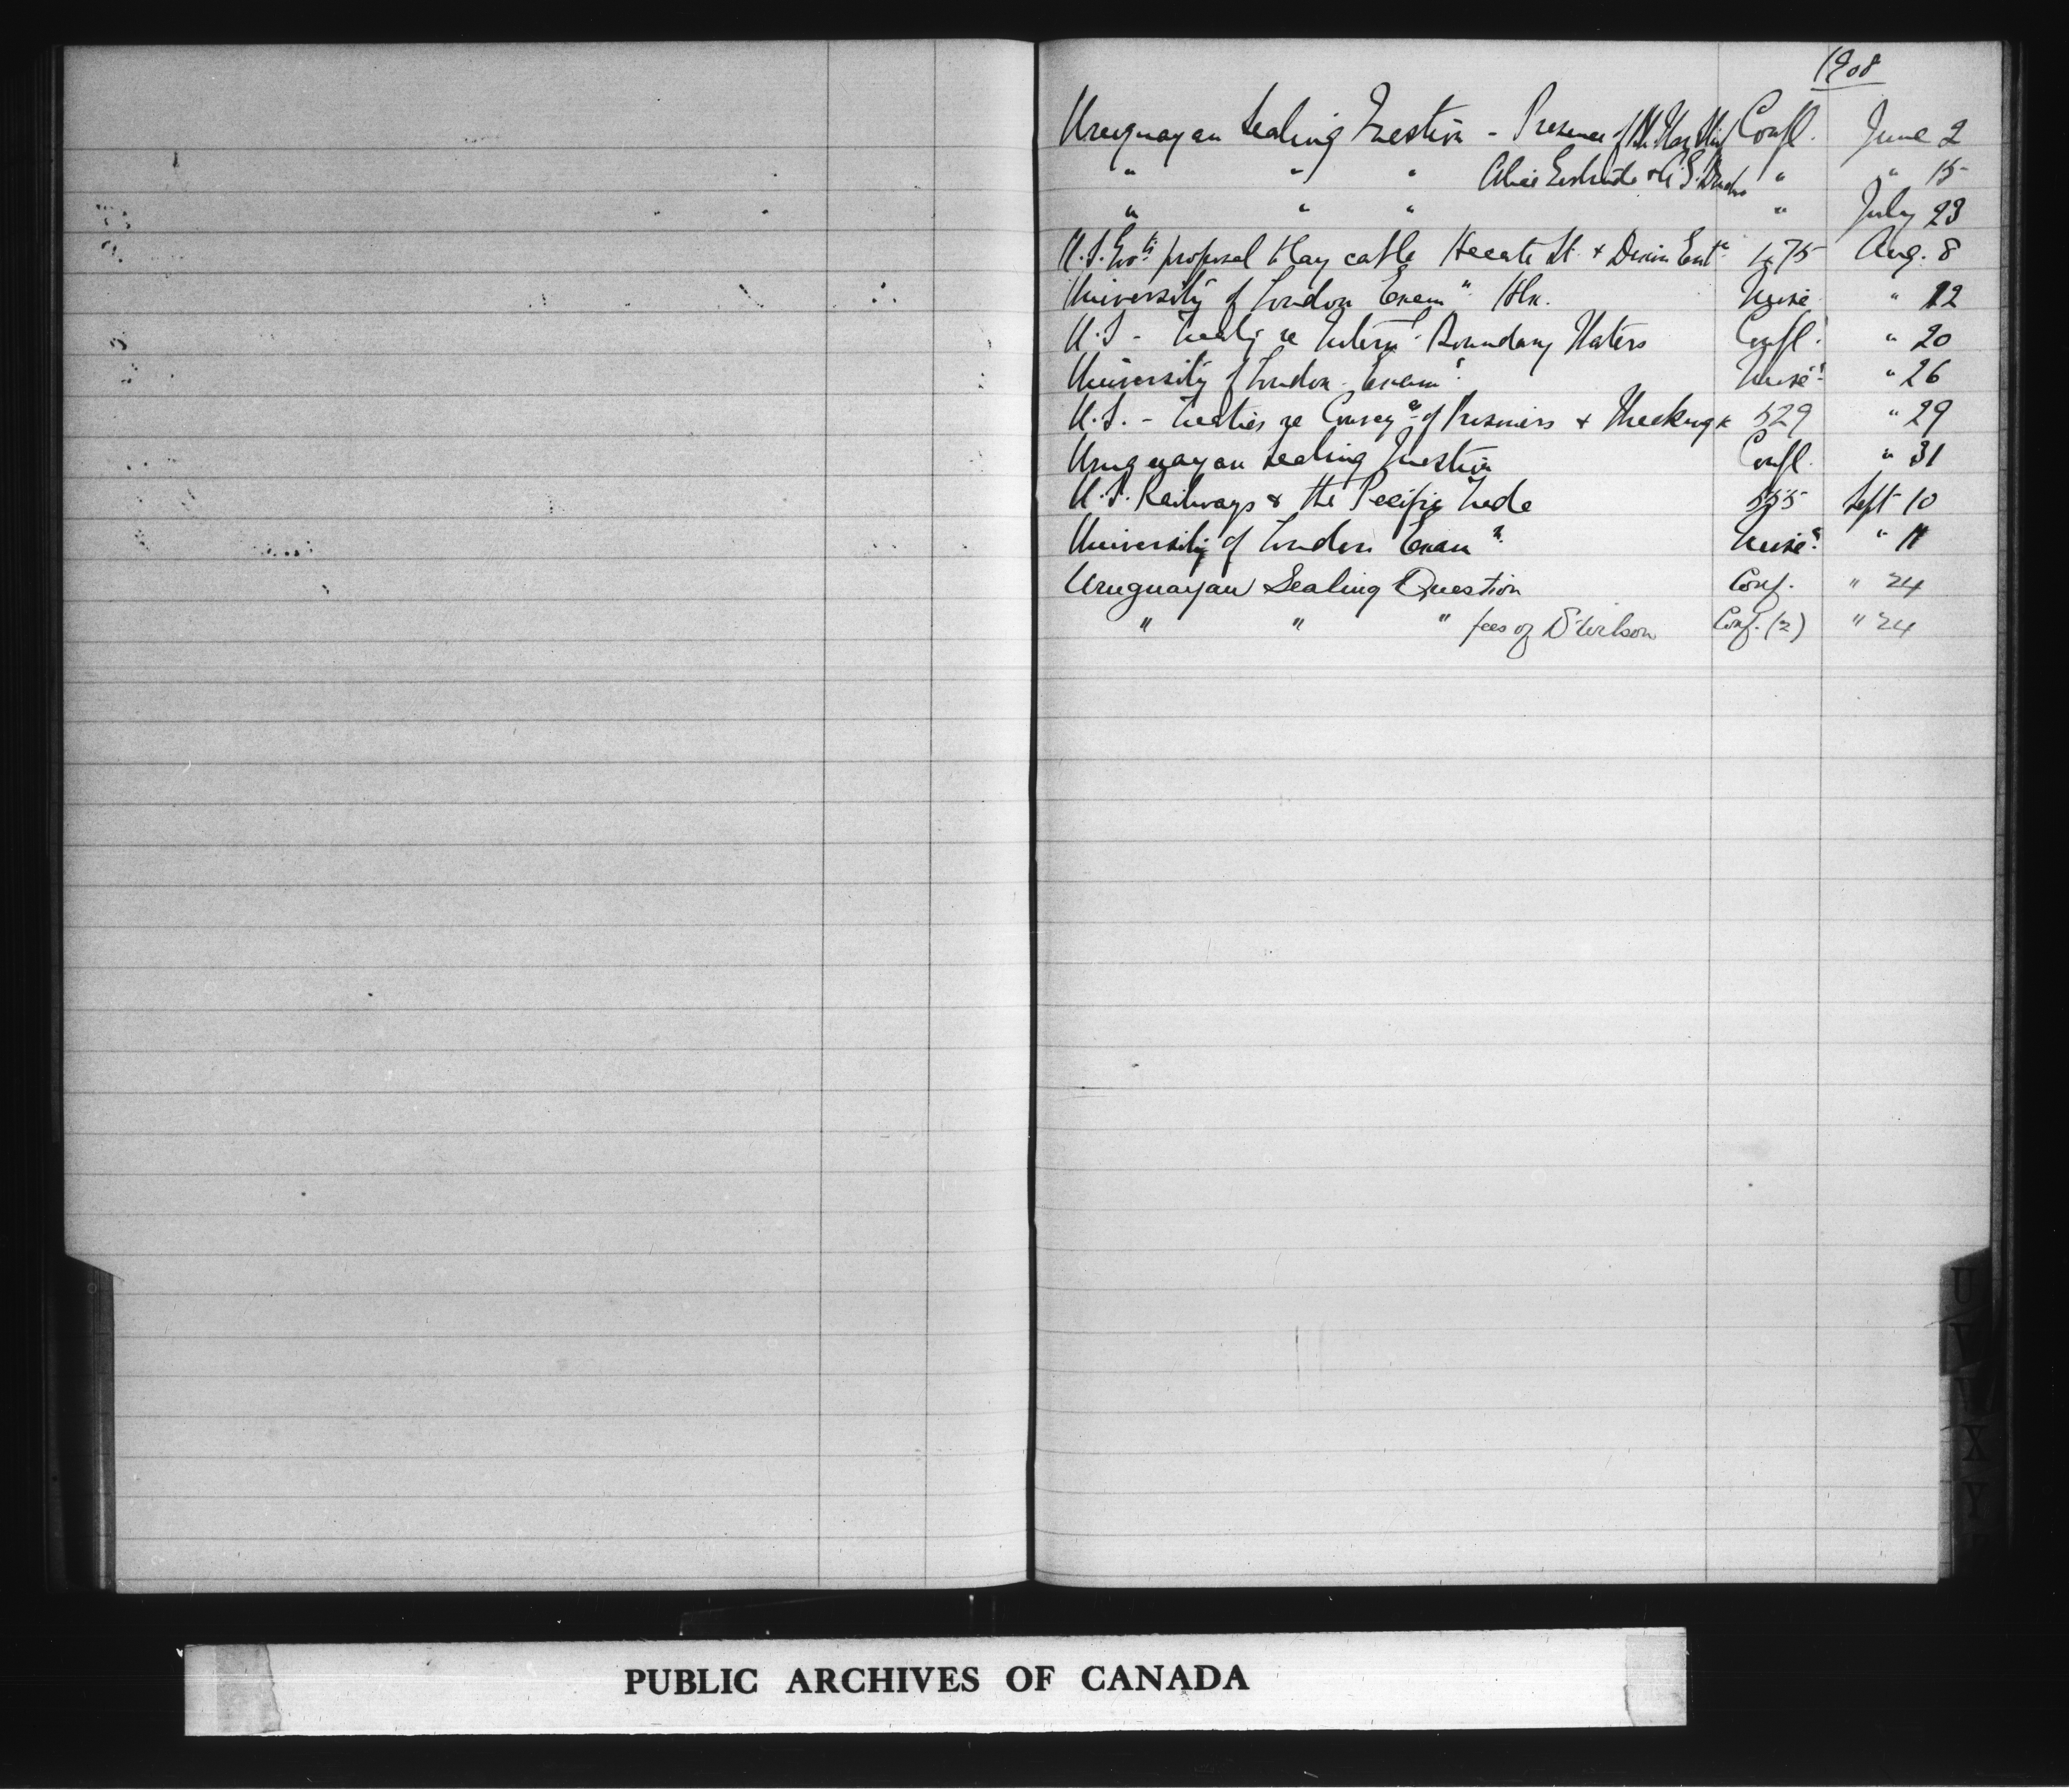 1908
Uruguayan Sealing Question - Presence of Confl. June 2
" " " Alice Gertrude & " " 15
" " " " July 23
U.S. Govts proposal to lay cable Hecate St. & Dixon Entce 475 Aug. 8
University of London Examn Hx. " 12
U.S - Treaty re Internl Boundary Waters Confl. " 20
University of London Examns " 26
U.S. - Treaties re Conveyce of Prisoners & Wrecking &c 529 " 29
Uruguayan Sealing Question Confl. " 31
U.S. Railways & the Pacific Trade 555 Sept 10
University of London Examn " 11
Uruguayan Sealing Question Conf. " 24
" " " fees of Conf. (2) " 24
U
V
W
X
Y
PUBLIC ARCHIVES OF CANADA